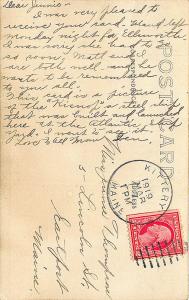 Dear Jennie -
I was very pleased to
receive your card. Hazel left
Monday night for Ellsworth
I was sorry she had to
so soon, Matt and
are both well and he
wants to be remembered
to you all.
This card is a picture
of the "Kicnof" a steel ship
that was built and launched
here at the Atlantic ship
yard. I went to see it.
Love to all from Bea.
POST CARD
Mrs. 
3 Lincoln St,
Newport
Maine
KITTERY
MAR
1919
PM
MAINE